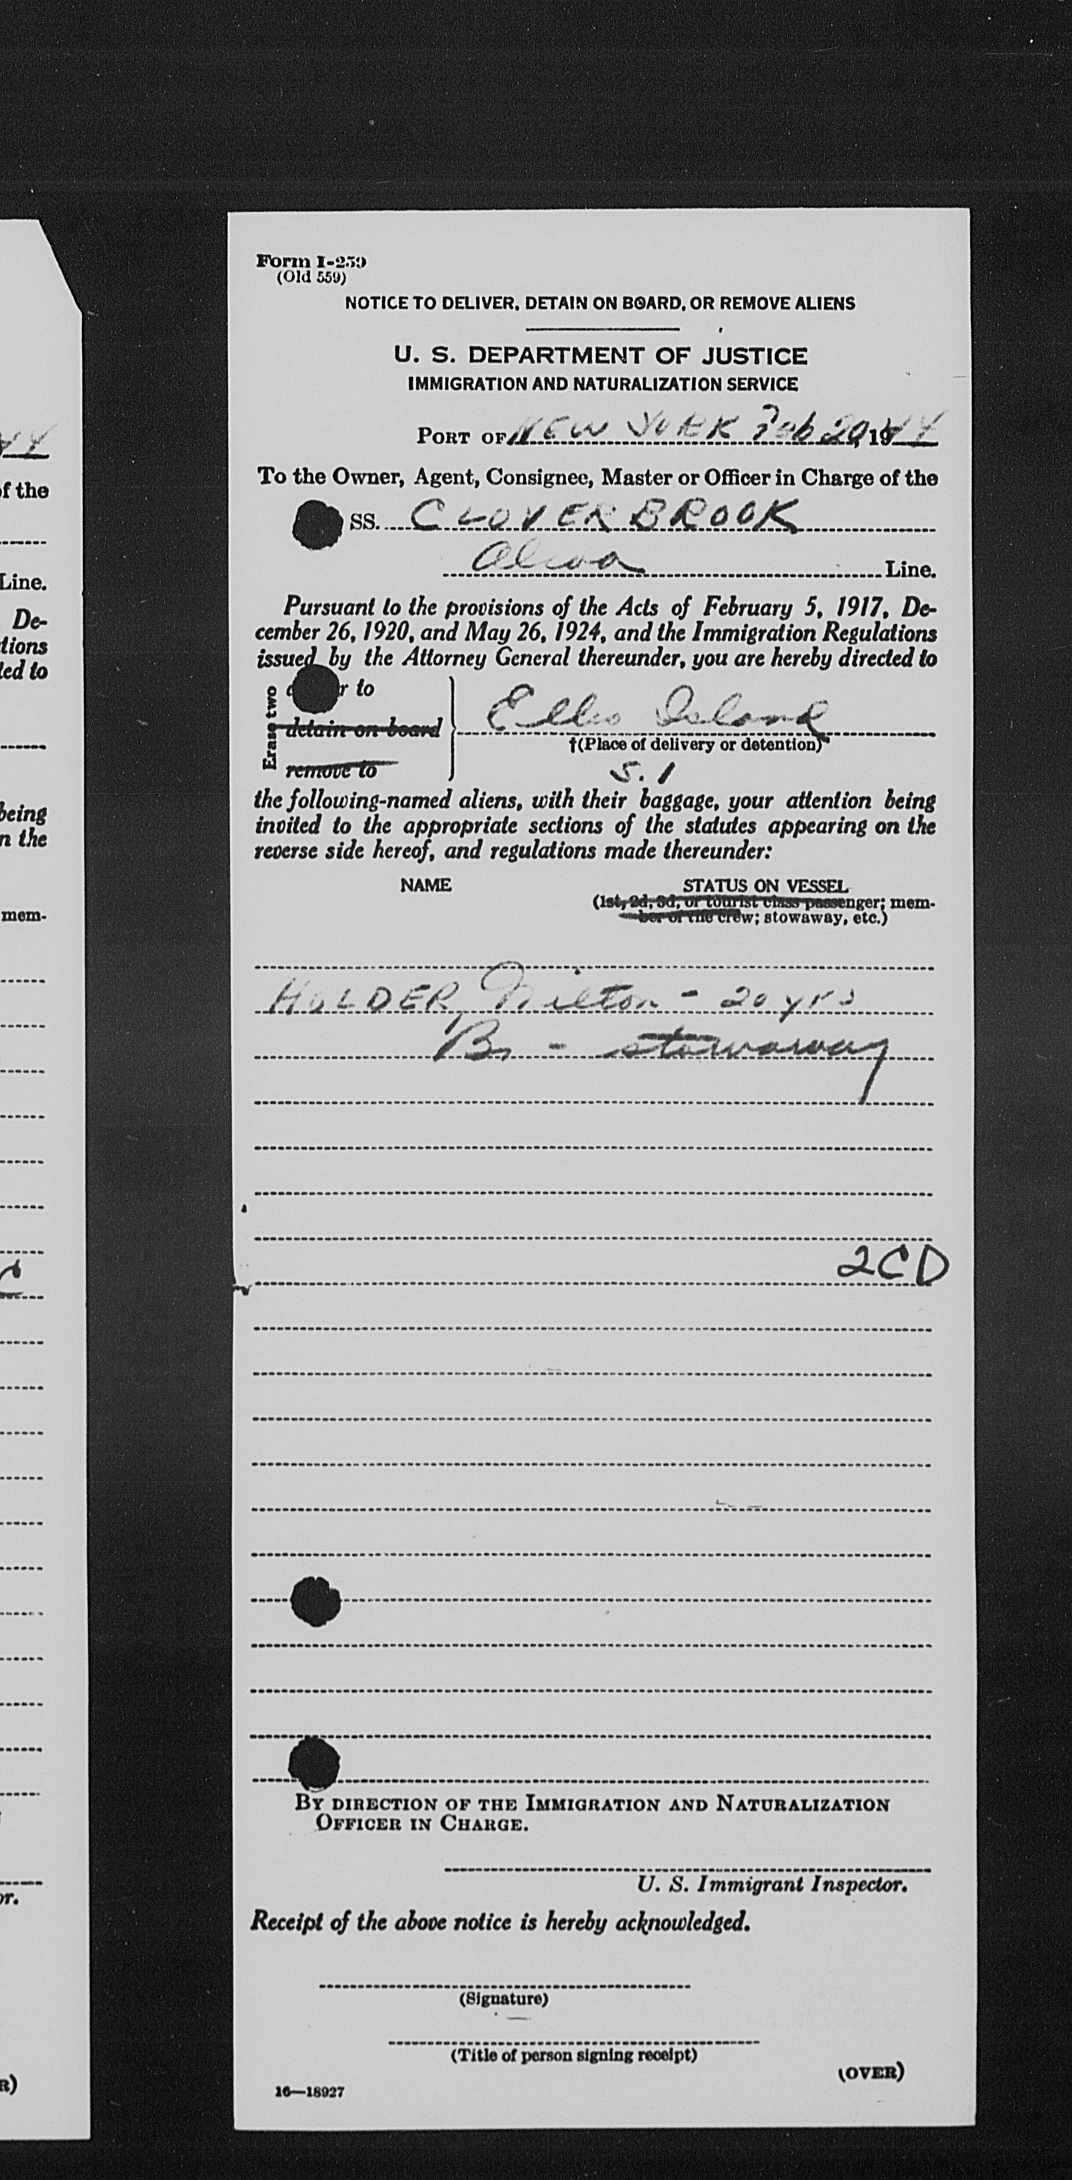 Form I-259
(Old 559)
NOTICE TO DELIVER, DETAIN ON BOARD, OR REMOVE ALIENS
U. S. DEPARTMENT OF JUSTICE
IMMIGRATION AND NATURALIZATION SERVICE
PORT OF NEW YORK Feb 20, 1944
To the Owner, Agent, Consignee, Master or Officer in Charge of the
SS. CLOVERBROOK
Alcoa Line.
Pursuant to the provisions of the Acts of February 5, 1917, De-
cember 26, 1920, and May 26, 1924, and the Immigration Regulations
issued by the Attorney General thereunder, you are hereby directed to
Erase two
to
detain on board
remove to
Ellis Island
†(Place of delivery or detention)
S. 1
the following-named aliens, with their baggage, your attention being
invited to the appropriate sections of the statutes appearing on the
reverse side hereof, and regulations made thereunder:
NAME STATUS ON VESSEL
(1st, 2d, 3d, or tourist class passenger; mem-
ber of the crew; stowaway, etc.)
HOLDER, Milton - 20 yrs
Br - stowaway
2CD
BY DIRECTION OF THE IMMIGRATION AND NATURALIZATION
OFFICER IN CHARGE.
U. S. Immigrant Inspector.
Receipt of the above notice is hereby acknowledged.
(Signature)
(Title of person signing receipt)
(OVER)
16—18927
44
of the
Line.
De-
being
n the
mem-
C